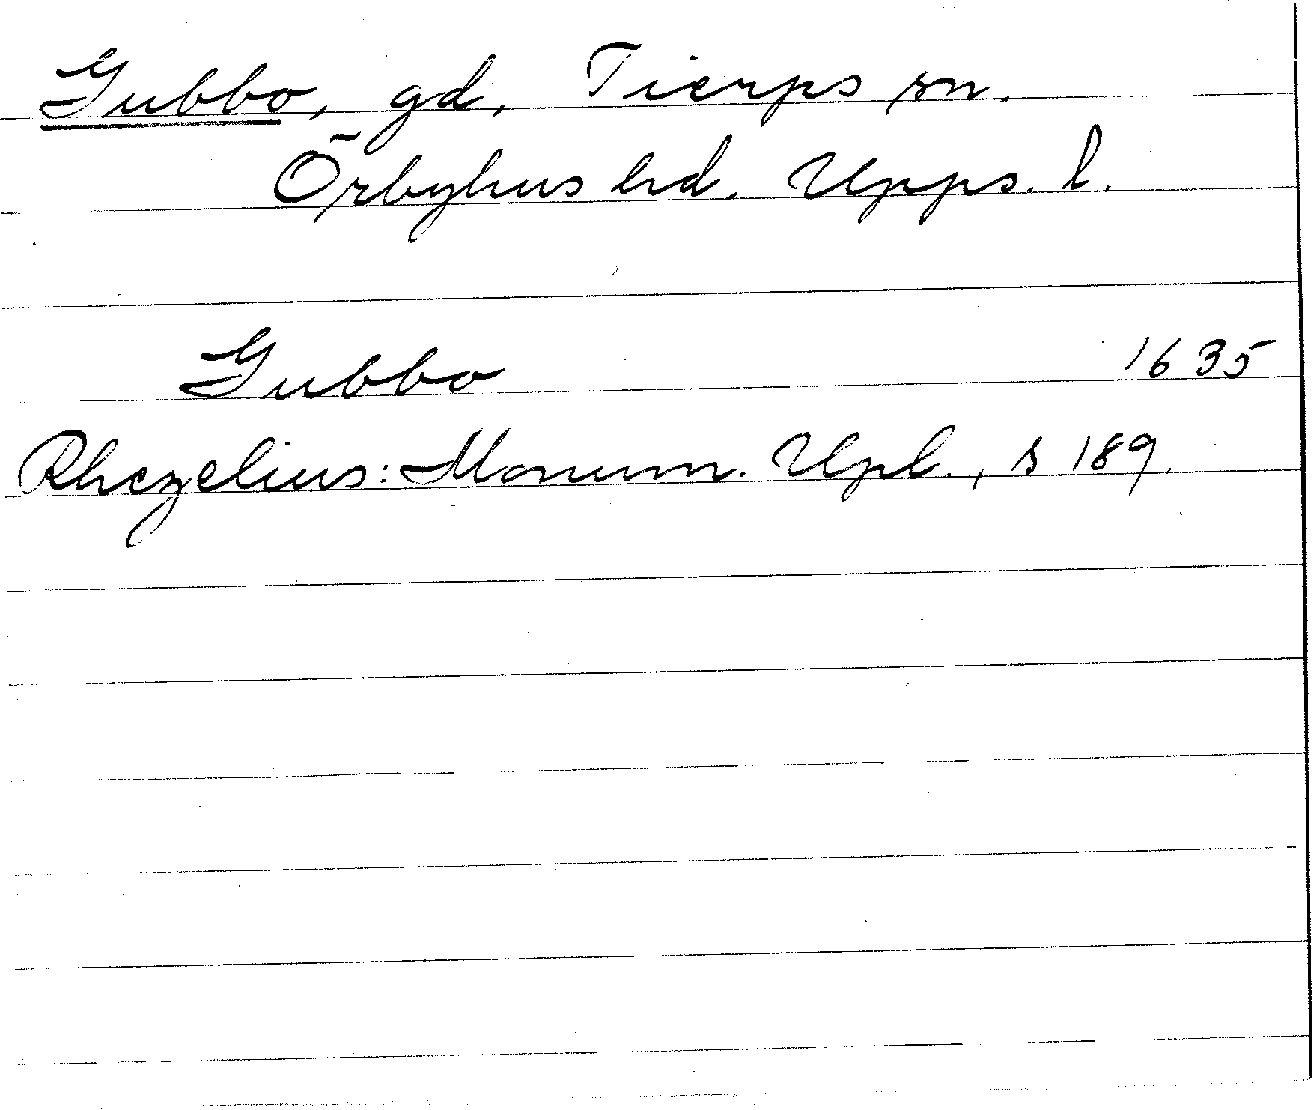 Gubbo, gd, Tierps sn.
Örbyhus hd. Upps. l.
Gubbo 1635
Rhezelius: Monum. Upl., s 189.